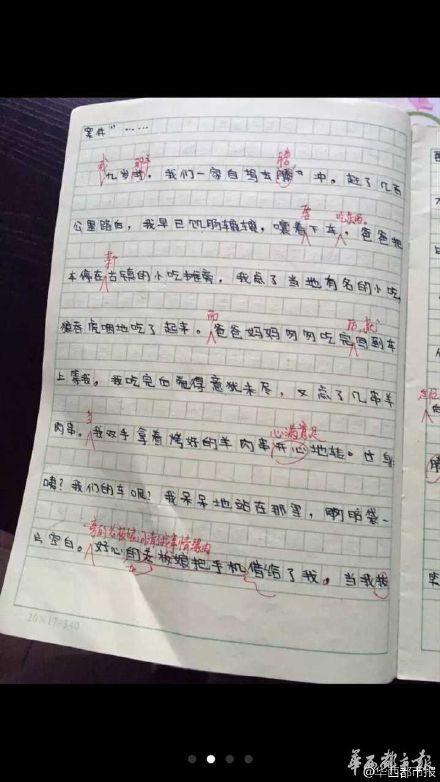 案件"……
那年
几岁时，我们一家自驾去 中。赶了几百
公里路后，我早已饥肠辘辘，嚷着下车。爸爸把
吃东西。
车停在古镇的小吃摊旁，我点了当地有名的小吃
狼吞虎咽地吃了起来。爸爸妈妈匆匆吃完回到车
而
后，就
上等我。我吃完后觉得意犹未尽，又点了几串羊
肉串。我双手拿着烤好的羊肉串开心地转过身
心满意足
咦？我们的车呢？我呆呆地站在那里，脑袋一
片空白。好心的老板娘把手机借给了我。当我
20×17=340
华西都市报
@华西都市报